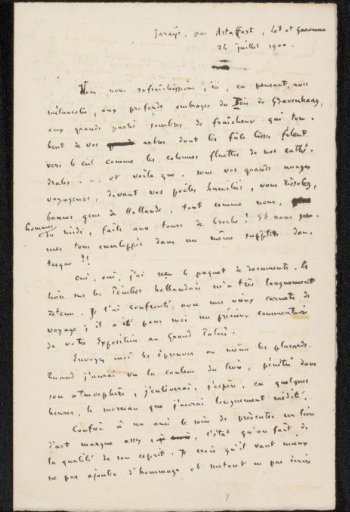 par Astaffort, Lot et Garonne
24 juillet 1900.
nous rafraîchissions ici, en pensant, avec
mélancolie, aux profonds ombrages du de Gravenhaag,
aux grands partis sombres de fraîcheur qui tom-
bent de vos arbres dont les fûts lisses filent
vers le ciel comme les colonnes fluttées de nos cathé-
drales — et voilà que, sous vos grands nuages
voyageurs, devant vos poêles humiliés, vous rissolez,
bonnes gens de Hollande, tout comme nous,
hommes du midi, faits aux tours de broche! Et nous som-
mes tous enveloppés dans un même supplice dan-
tesque!!
Oui, oui, j'ai reçu le paquet de documents. Le
livre sur les Peintres hollandais m'a très longuement
retenu. Je l'ai confronté avec mes vieux carnets de
voyage; il a été pour moi un précieux commentaire
de votre Exposition au Grand Palais.
Envoyez moi les épreuves ou même les placards.
Quand j'aurai vu la couleur du livre, pénétré dans
son atmosphère, j'enlèverai, j'espère, en quelques
heures, le morceau que j'aurai longuement médité.
Confier à un ami le soin de présenter un livre
d'art marque assez, l'état qu'on fait de
la qualité de son esprit. Je crois qu'il vaut mieux
ne pas ajouter d'hommage et surtout ne pas écrire